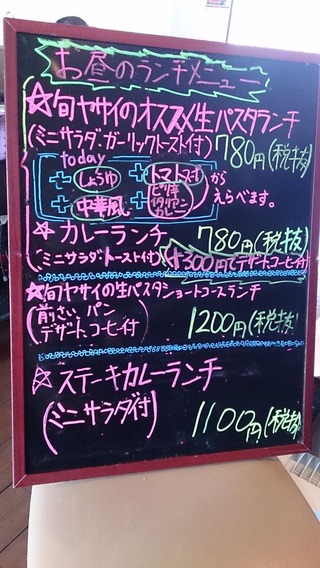 お昼のランチメニュー
☆旬ヤサイのオススメ生パスタランチ
(ミニサラダ・ガーリックトースト付) 780円(税抜)
today
しょうゆ
トマトソース
中華風
から
えらべます。
☆カレーランチ 780円(税抜)
(ミニサラダ・トースト付) +300円でデザートコーヒー付
☆旬ヤサイの生パスタショートコースランチ
(前さい、パン
デザートコーヒー付) 1200円(税抜)
☆ステーキカレーランチ
(ミニサラダ付) 1100円(税抜)